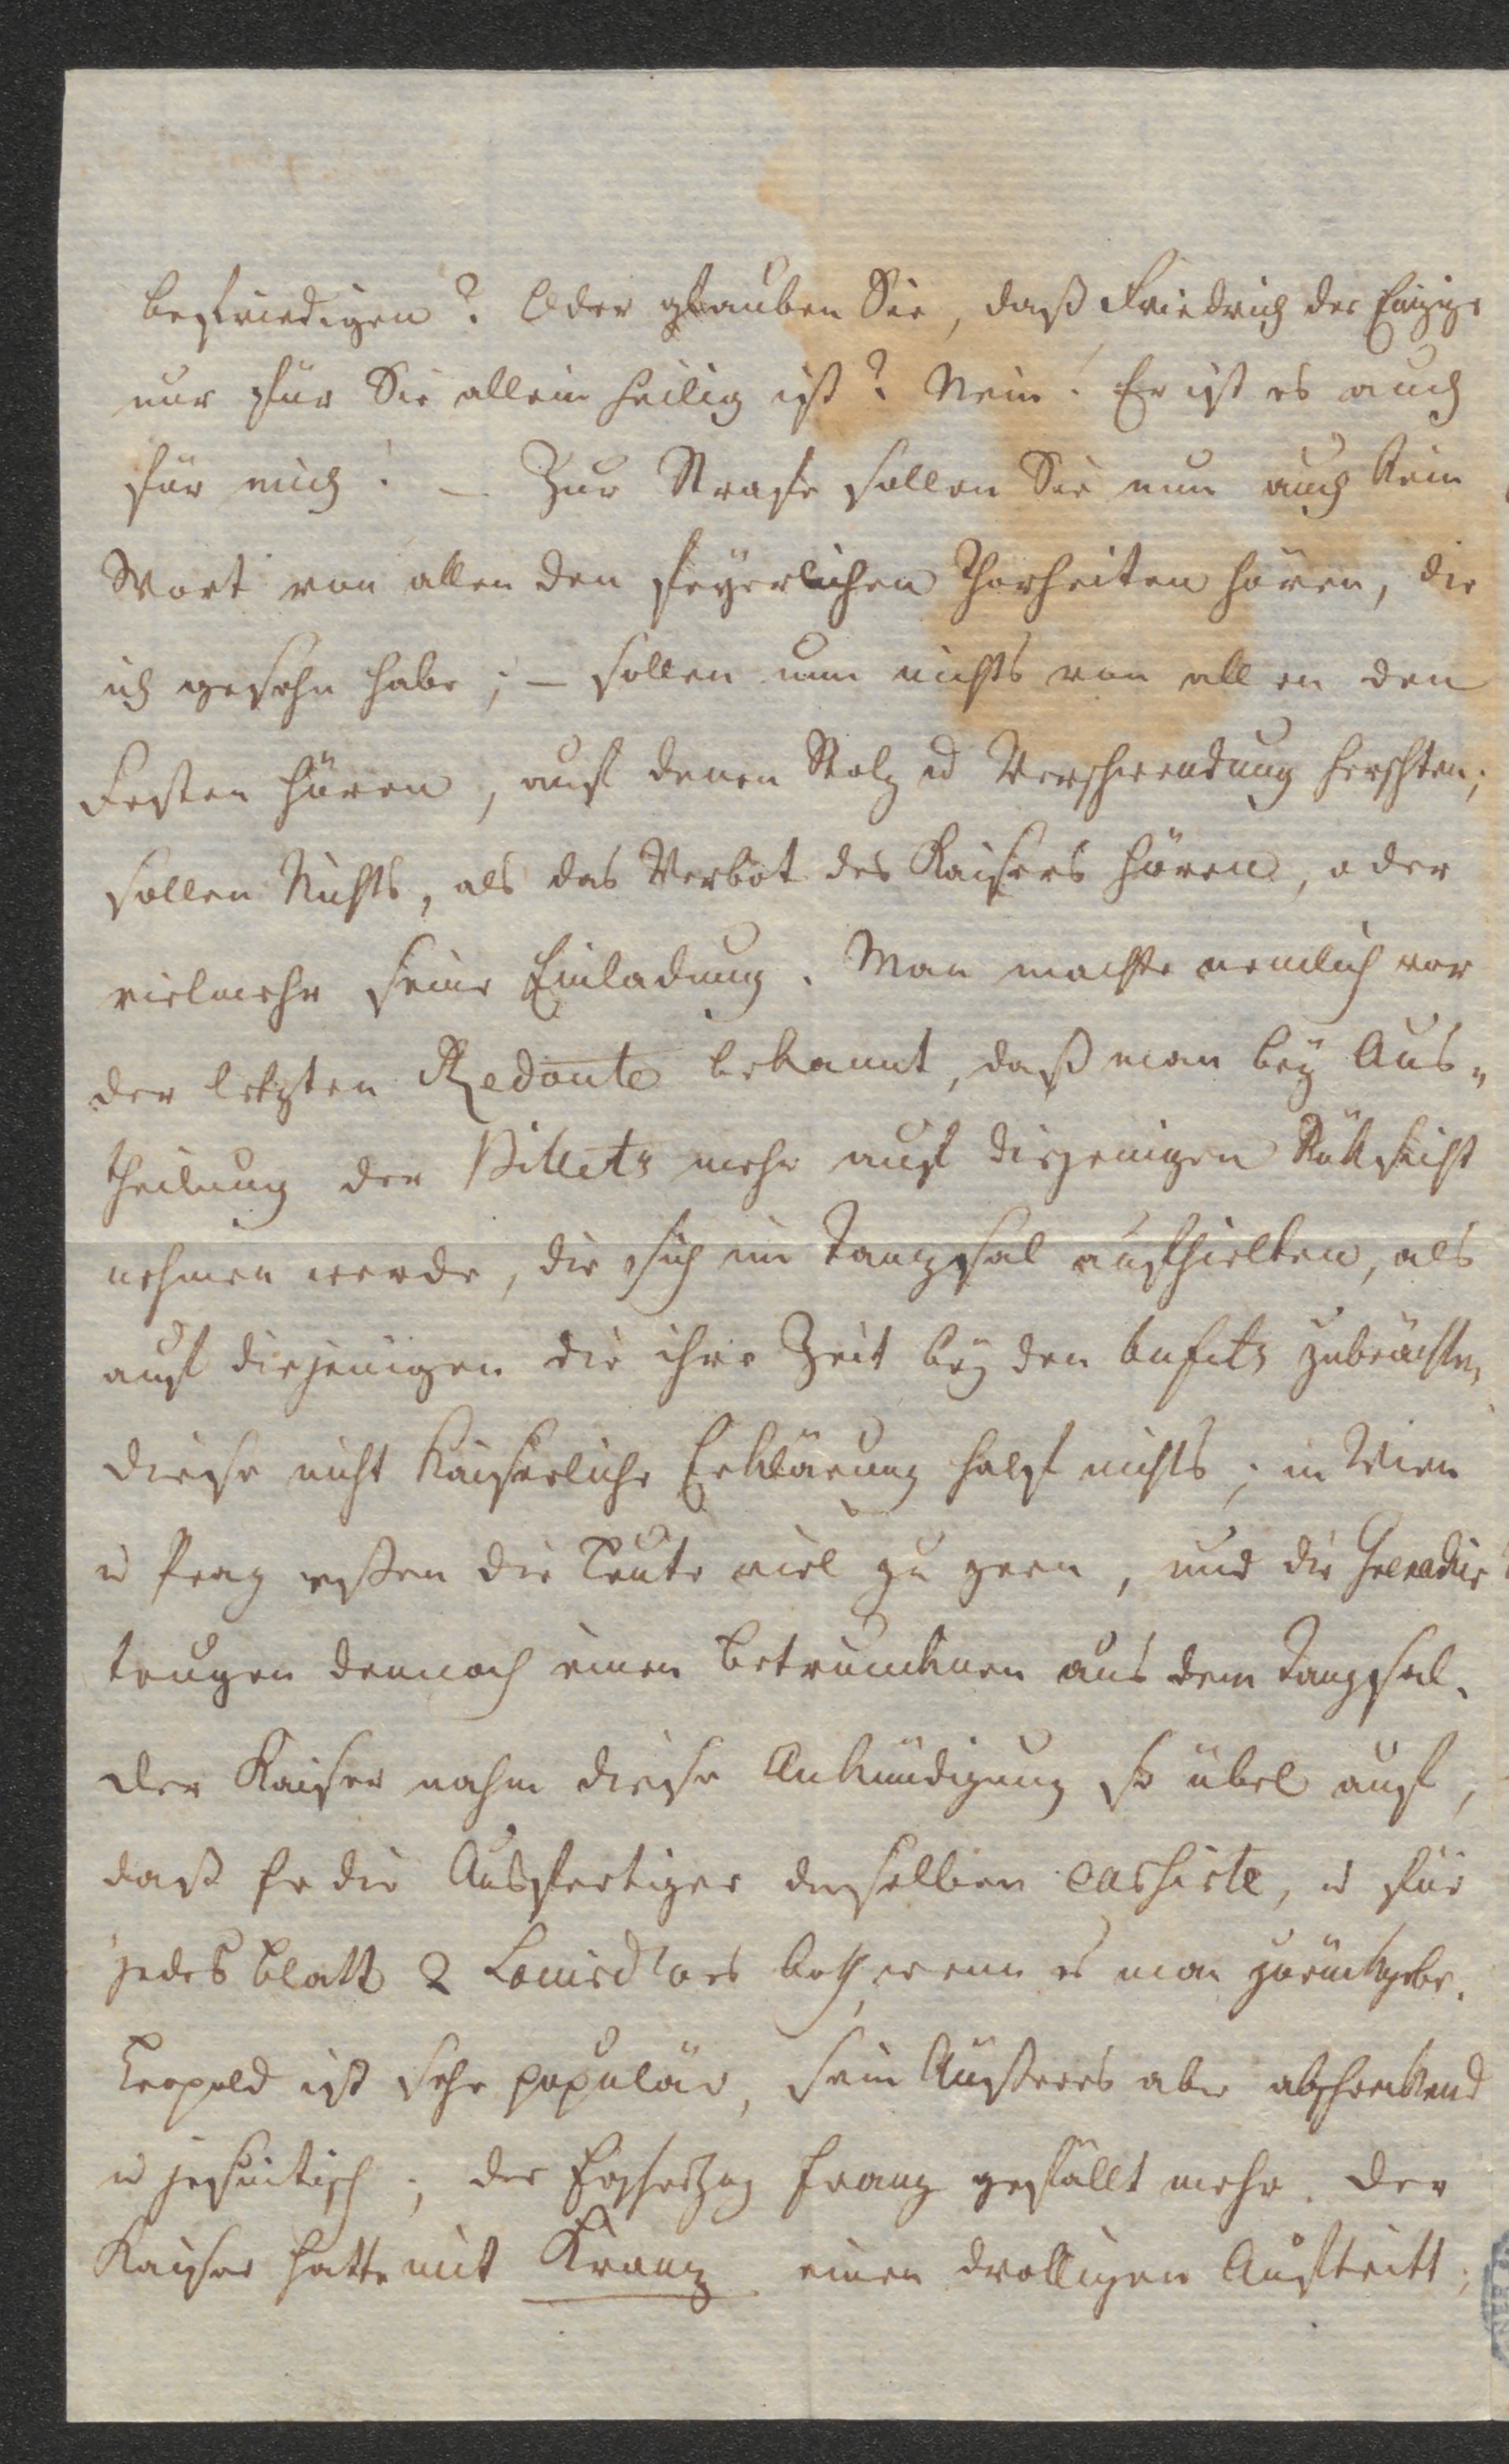 befriedigen? Oder glauben Sie, daß Friedrich der Einzige
nur für Sie allein heilig ist? Nein! Er ist es auch
für mich! – Zur Strafe sollen Sie nun auch kein
Wort von allen den feyerlichen Thorheiten hören, die
ich gesehn habe; – sollen nun nichts von allen den
Festen hören, auf denen Stolz u Verschwendung herschten;
sollen Nichts, als das Verbot des Kaisers hören, oder
vielmehr seine Einladung. Man machte nemlich vor
der letzten Redoute bekannt, daß man bey Aus-
theilung der Billets mehr auf diejenigen Rüksicht
nehmen werde, die sich im Tanzsal aufhielten, als
auf diejenigen die ihre Zeit bey den bufets zubrächten,
diese nicht Kaiserliche Erklärung half nichts; in Wien
u Prag eßen die Leute viel zu gern, und die Grenadier
trugen dennoch einen Betrunknen aus dem Tanzsal.
Der Kaiser nahm diese Ankündigung so übel auf,
daß Er die Ausfertiger derselben cassirte, u für
jedes Blatt 2 Louisd'ors both, wenn es man zurükgebe.
Leopold ist sehr populär, sein Äußeres aber abschrekend
u jesuitisch; der Erzherzog Franz gefällt mehr. Der
Kaiser hatte mit Kranz einen drolligen Auftritt;